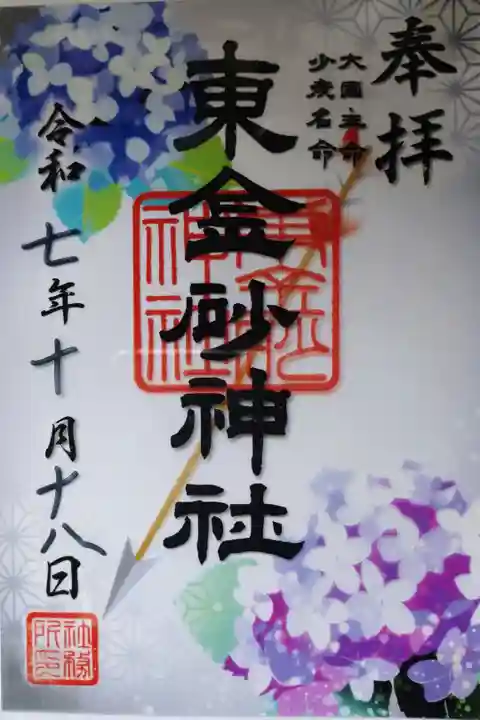 奉拝
大国主命
少彦名命
東金砂神社
東金砂神社
令和七年十月十八日
社務所印